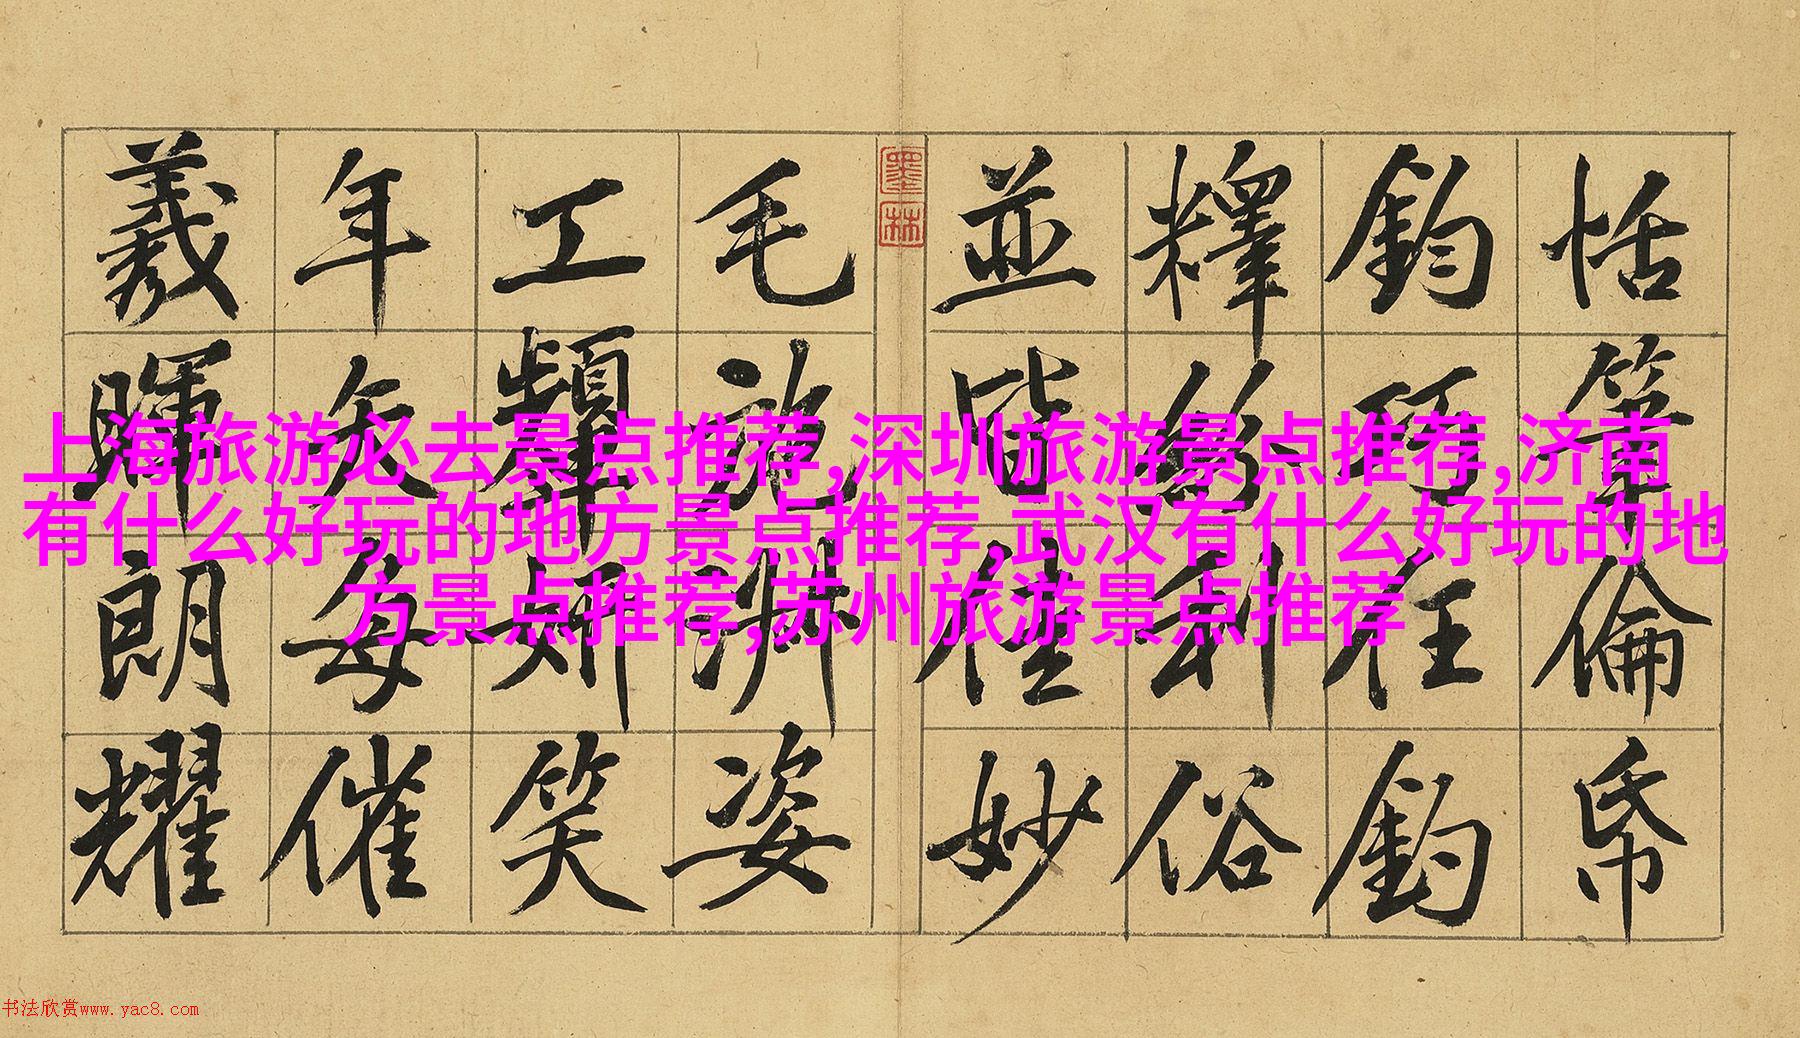 恬筆倫帋
鈞巧任釣
釋紛利俗
並皆佳妙
墨林
毛施淑姿
工顰妍笑
年矢每催
羲暉朗耀
上海旅游必去景点推荐,深圳旅游景点推荐,济南
有什么好玩的地方景点推荐,武汉有什么好玩的地
方景点推荐,苏州旅游景点推荐
书法欣赏www.yac8.com